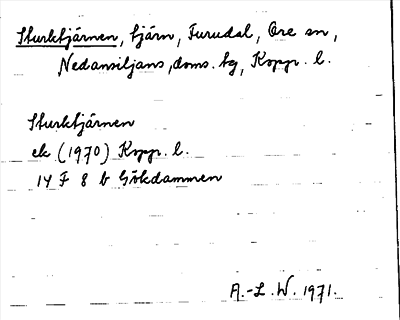 Sturktjärnen, tjärn, Furudal, Ore sn,
Nedansiljans doms. tg, Kopp. l.
Sturktjärnen
ek (1970) Kopp. l.
14 F 8 b Gökdammen
A.-L. W. 1971.